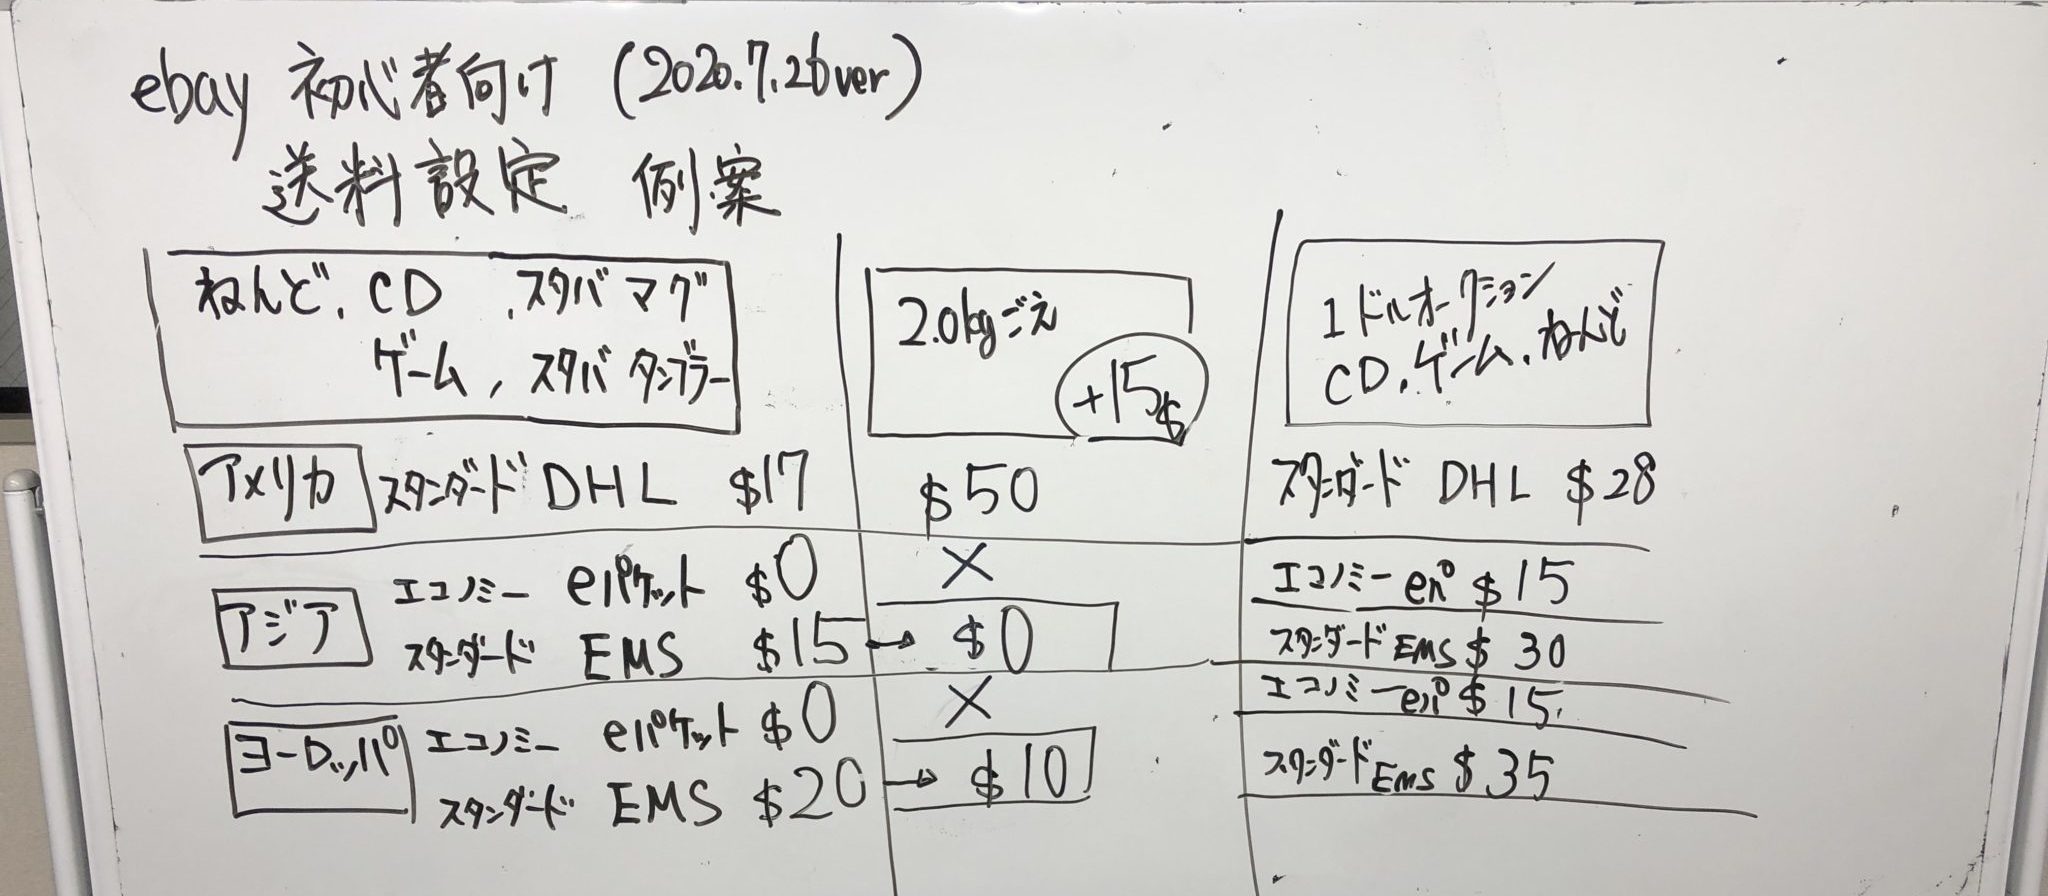 ebay 初心者向け (2020.7.26ver)
送料設定 例案
ねんど、CD、スタバマグ
ゲーム、スタバタンブラー
2.0kgごえ
+15$
1ドルオークション
CD、ゲーム、ねんど
アメリカ スタンダード DHL $17
$50
スタンダード DHL $28
アジア
エコノミー eパケット $0
×
エコノミー eパ $15
スタンダード EMS $15 → $0
スタンダード EMS $30
ヨーロッパ
エコノミー eパケット $0
×
エコノミー eパ $15
スタンダード EMS $20 → $10
スタンダード EMS $35